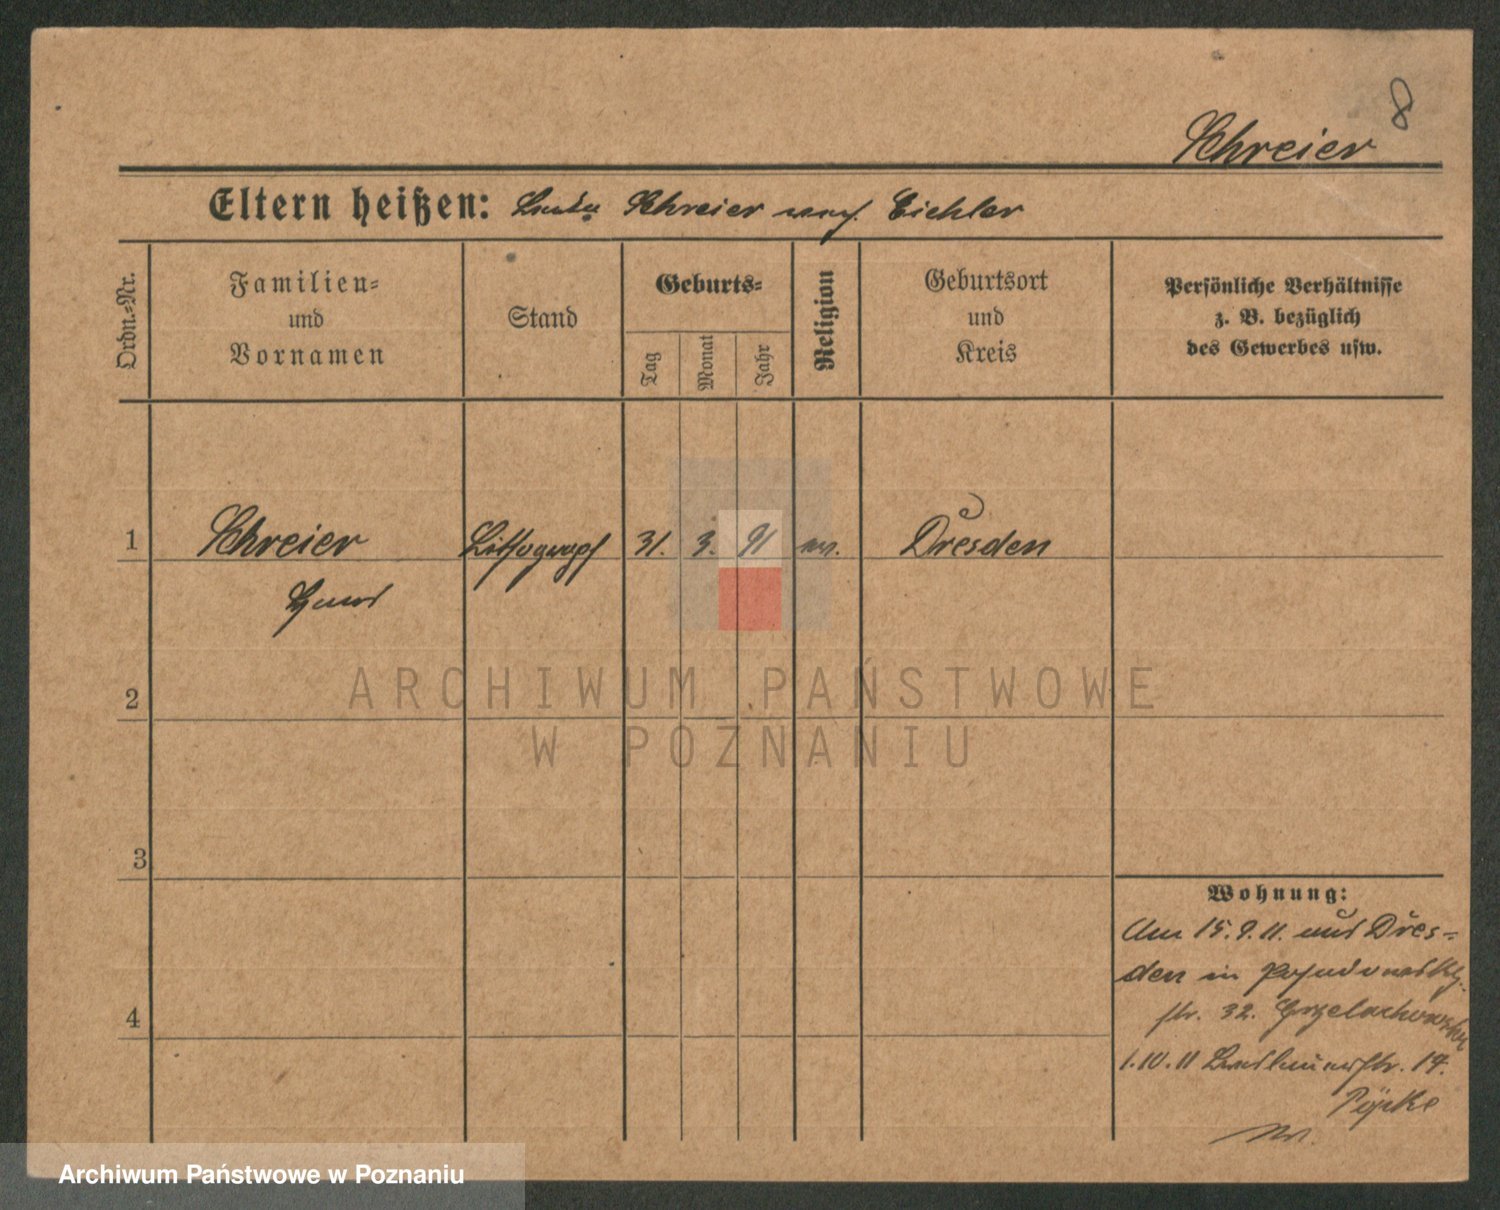 8
Schreier
Eltern heißen: Schreier Eichler
Ordn.=Nr.
Familien=
und
Vornamen
Stand
Geburts=
Tag
Monat
Jahr
Religion
Geburtsort
und
Kreis
Persönliche Verhältnisse
z. B. bezüglich
des Gewerbes usw.
1
Schreier
Lithograph
31.
3.
91
ev.
Dresden
2
3
4
Wohnung:
Am 15.9.11. aus Dres=
den in
str. 32.
1.10.11
ARCHIWUM PAŃSTWOWE
W POZNANIU
Archiwum Państwowe w Poznaniu